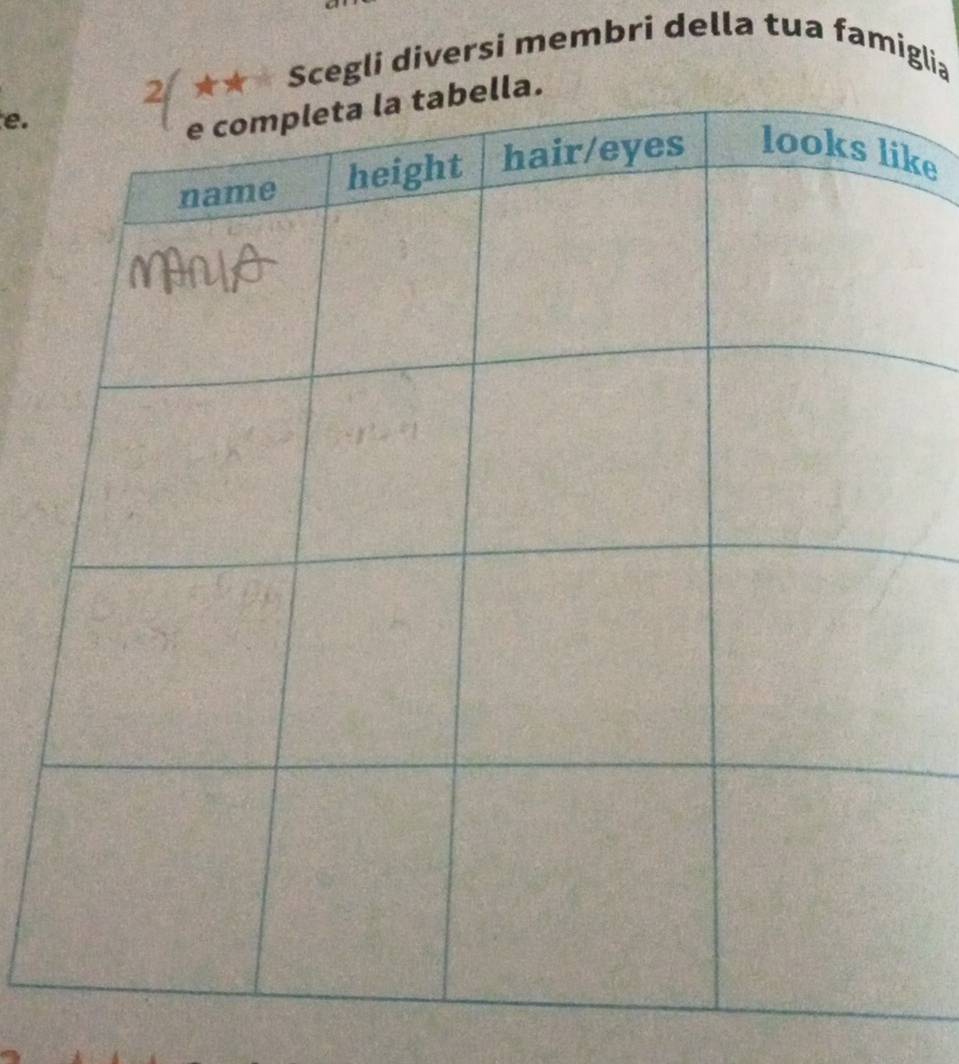 2 ★★★ Scegli diversi membri della tua famiglia
e completa la tabella.
e.
name height hair/eyes looks like
MARIA